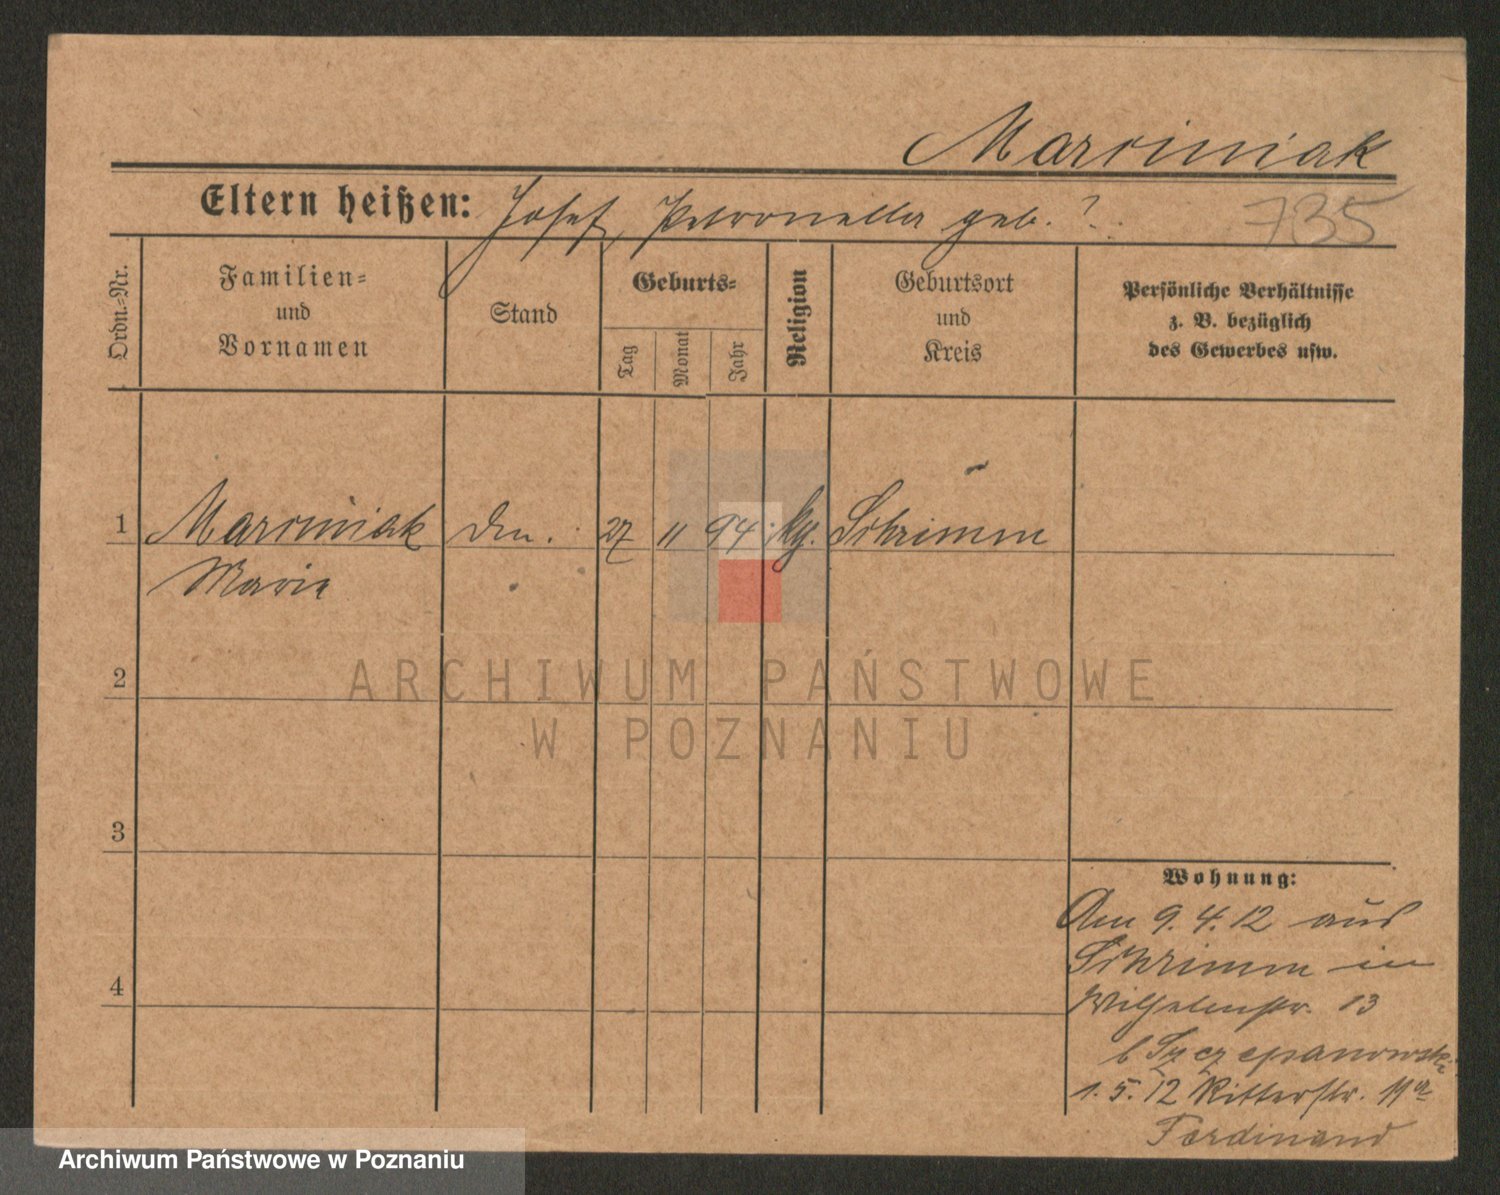 Marciniak
Eltern heißen: Josef, Petronella geb. ?
735
Ordn.=Nr.
Familien=
und
Vornamen
Stand
Geburts=
Tag
Monat
Jahr
Religion
Geburtsort
und
Kreis
Persönliche Verhältnisse
z. B. bezüglich
des Gewerbes usw.
1 Marciniak 27 11 94 Schrimm
Marie
2
3
4
ARCHIWUM PAŃSTWOWE
W POZNANIU
Wohnung:
Am 9.4.12 aus
Schrimm in
Wilhelmstr. 13
b Szczepanowski
1.5.12 Ritterstr. 11a
Ferdinand
Archiwum Państwowe w Poznaniu